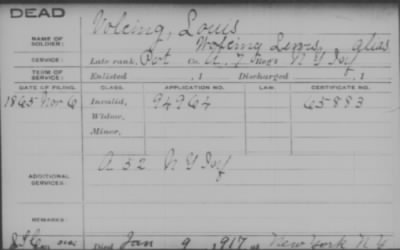 DEAD
NAME OF SOLDIER: Volcing, Louis
Wolcing Lewis, alias
SERVICE: Late rank, Pvt Co. A, 7 Reg't N Y Inf
TERM OF SERVICE: Enlisted , 1 Discharged , 1
DATE OF FILING. CLASS. APPLICATION NO. LAW. CERTIFICATE NO.
1865 Nov 6 Invalid, 94964 65883
Widow,
Minor,
ADDITIONAL SERVICES: A 52 N Y Inf
REMARKS:
Died Jan 9, 1917, at New York N Y